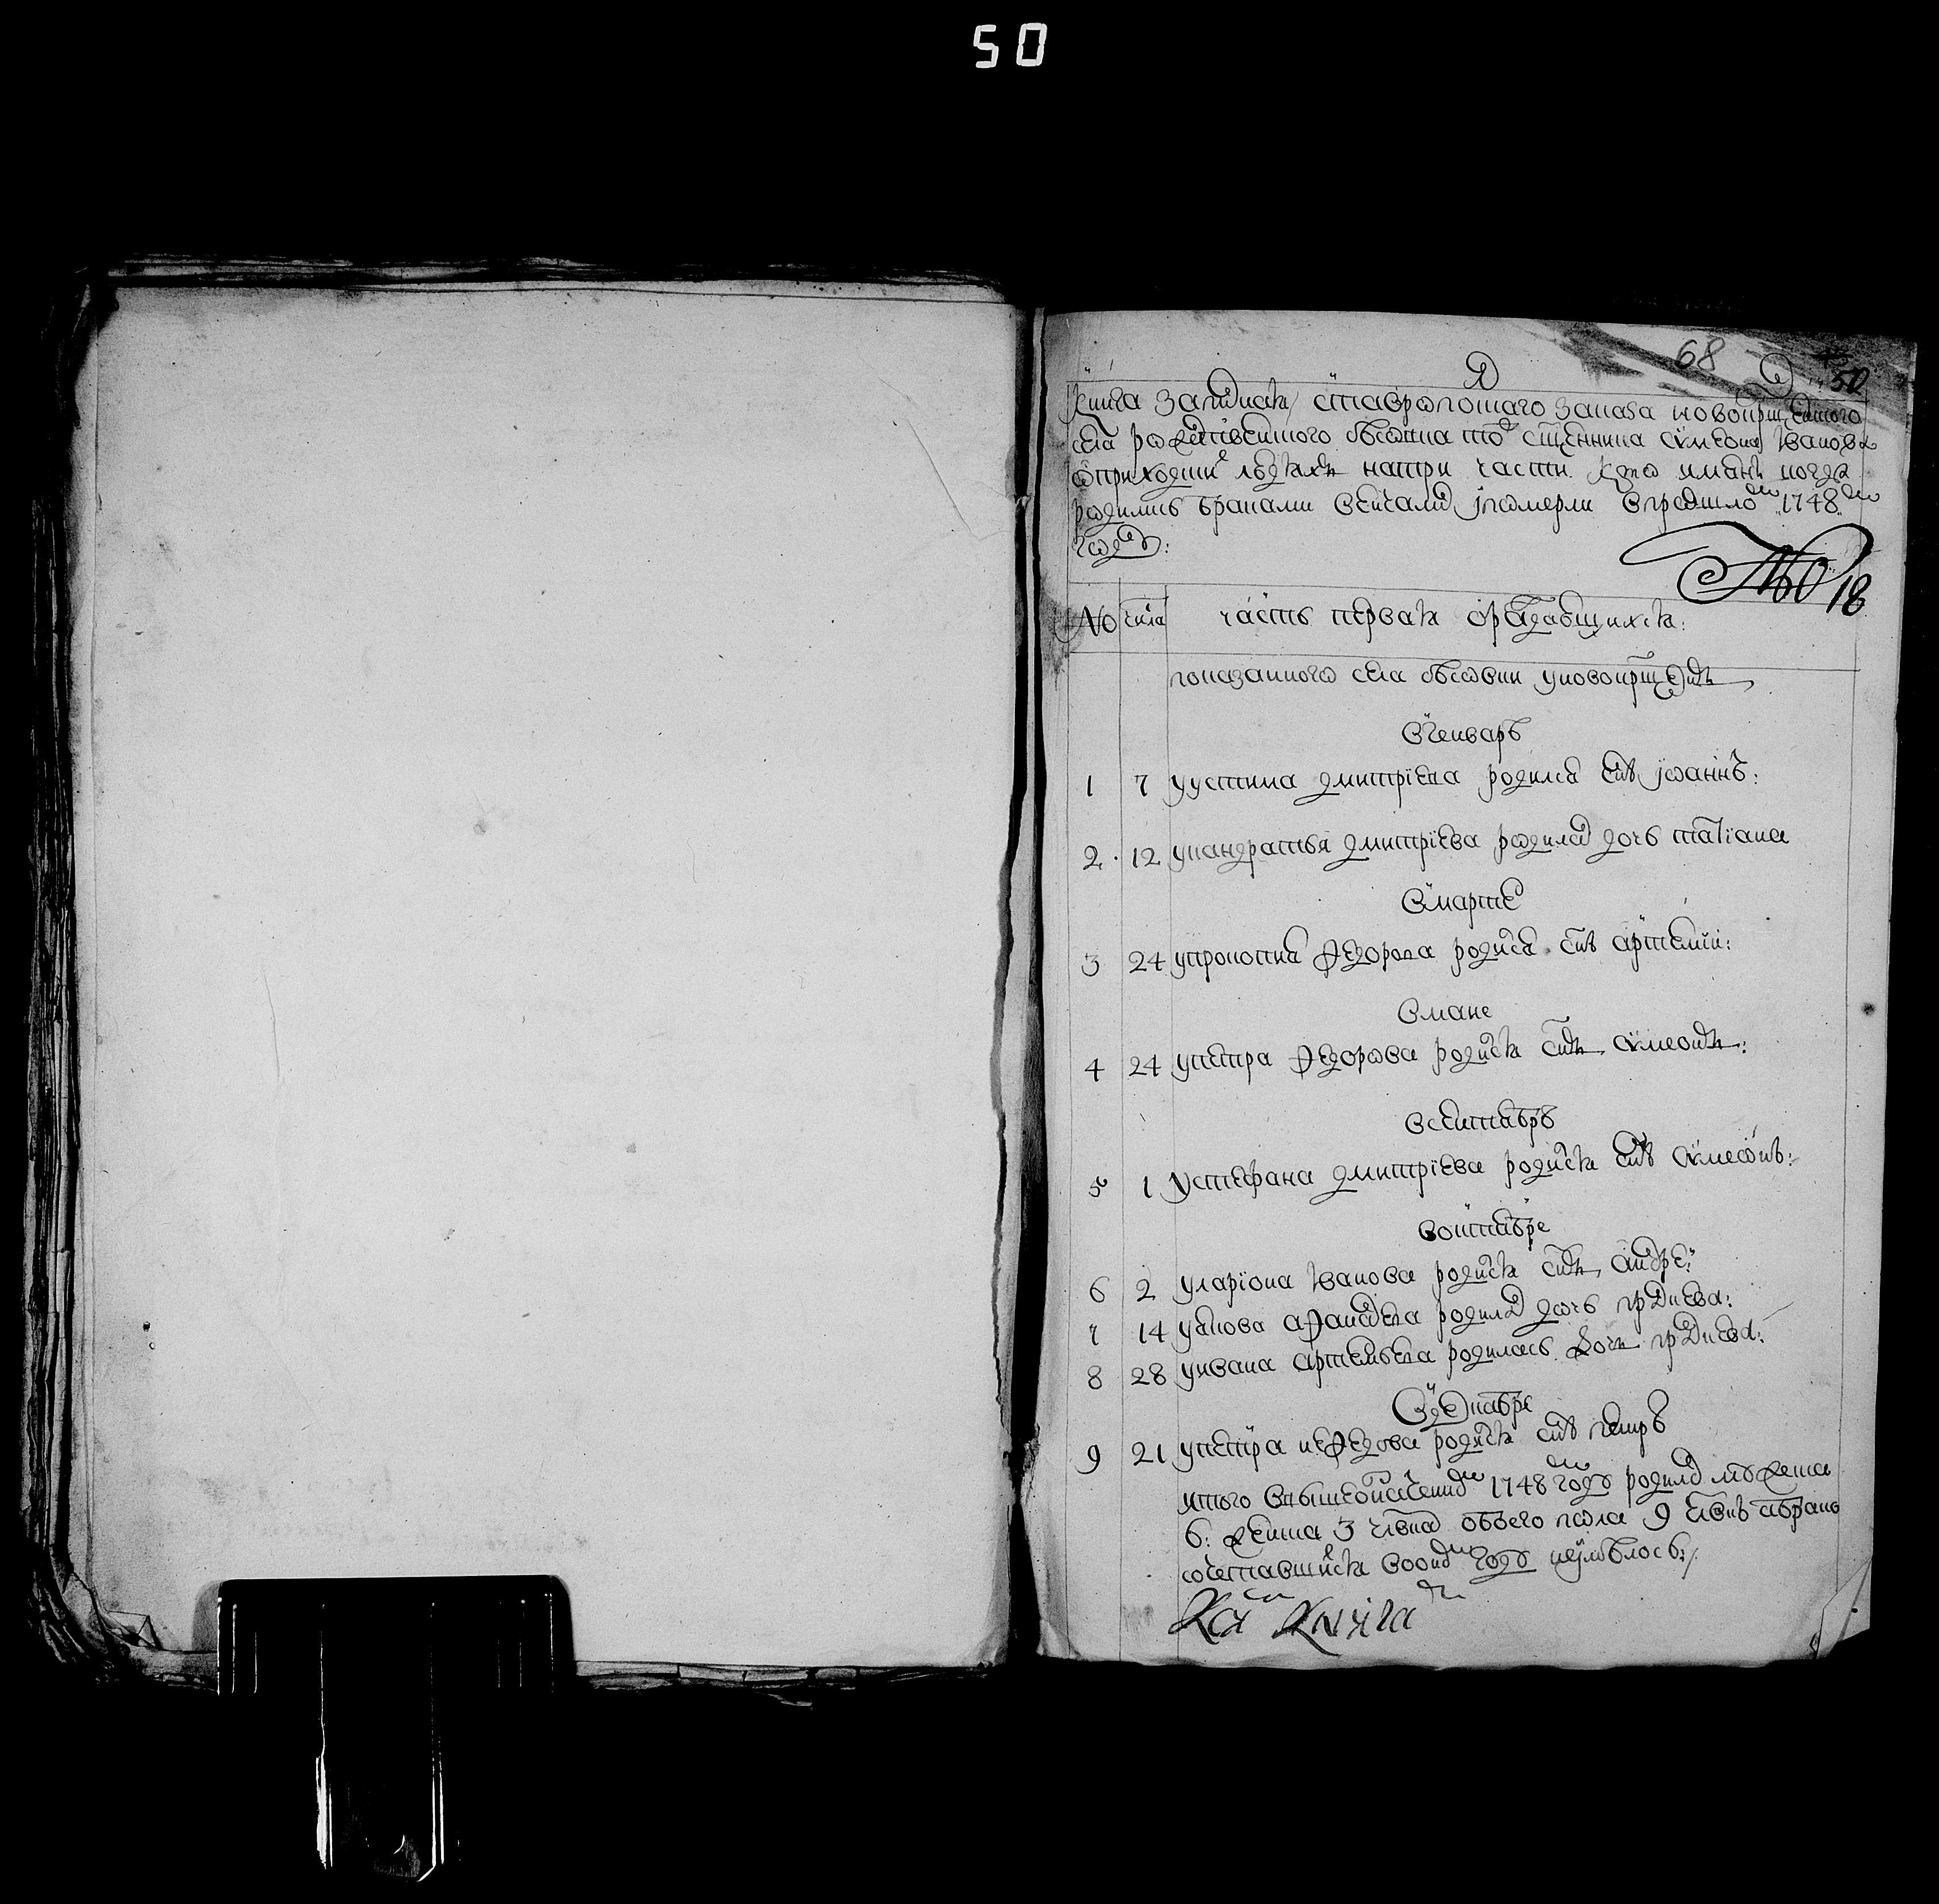 50
68
50
Книга записная ставропошаго заказа новокрщенного
села рождественского тож сщенника симеона Иванова
о приходских людях на три части кто имяны когда
родились браками венчались и померли в прошлом 1748 м
году:
№ 18
№ числа часть первая о рождавшихся:
показанного села у новокрщеных
в генваре
1 7 у устина дмитрїева родился снъ іѡаннъ:
2 12 у кандратья дмитрїева родилась дочь татїана
в марте
3 24 у прокопия федорова родился снъ артемїй:
в мае
4 24 у петра федорова родился снъ симеонъ:
в сентябре
5 1 у стефана дмитрїева родился снъ симеонъ:
в октябре
6 2 у ларїона иванова родился снъ андрей
7 14 у якова афанасьева родилась дочь праскева:
8 28 у ивана артемьева родилась дочь праскева:
в декабре
9 21 у петра нефедова родился снъ петръ
итого в 1748 году родилось мужеска
6: женска 3 обоего пола 9 члвкъ а браком
сочетавшихся в оном году не имелось:
Кся Книга